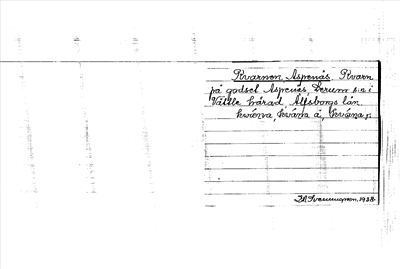 Kvarnen, Aspenäs. Kvarn
på godset Aspenäs, Lerum s:n i
Vättle härad, Älfsborgs län.
kwärna, kvärna å, kvärna,
1938.